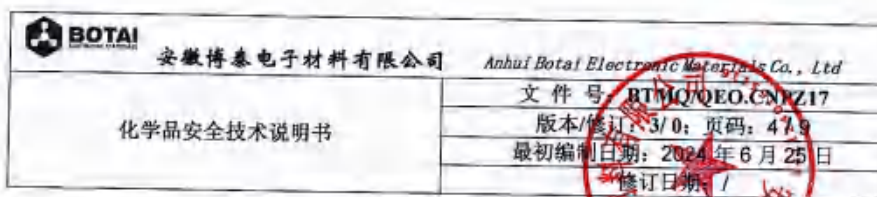 BOTAI
安徽博泰电子材料有限公司 Anhui Botai Electronic Materials Co., Ltd
化学品安全技术说明书
文 件 号：BTMQ/QEO.CNPZ17
版本/修订：3/ 0；页码：4/ 9
最初编制日期：2024 年 6 月 25 日
修订日期：/